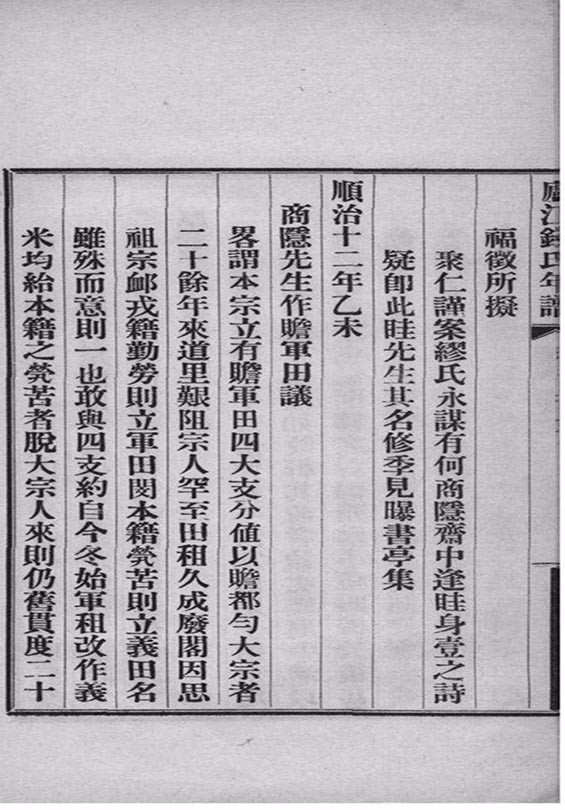 廬江錢氏年譜
福徵所擬
聚仁謹案繆氏永謀有何商隱齋中逢眭身壹之詩
疑卽此眭先生其名修季見曝書亭集
順治十二年乙未
商隱先生作贍軍田議
畧謂本宗立有贍軍田四大支分值以贍都勻大宗者
二十餘年來道里艱阻宗人罕至田租久成廢閣因思
祖宗卹戎籍勤勞則立軍田閔本籍焭苦則立義田名
雖殊而意則一也敢與四支約自今冬始軍租改作義
米均給本籍之焭苦者脫大宗人來則仍舊貫度二十